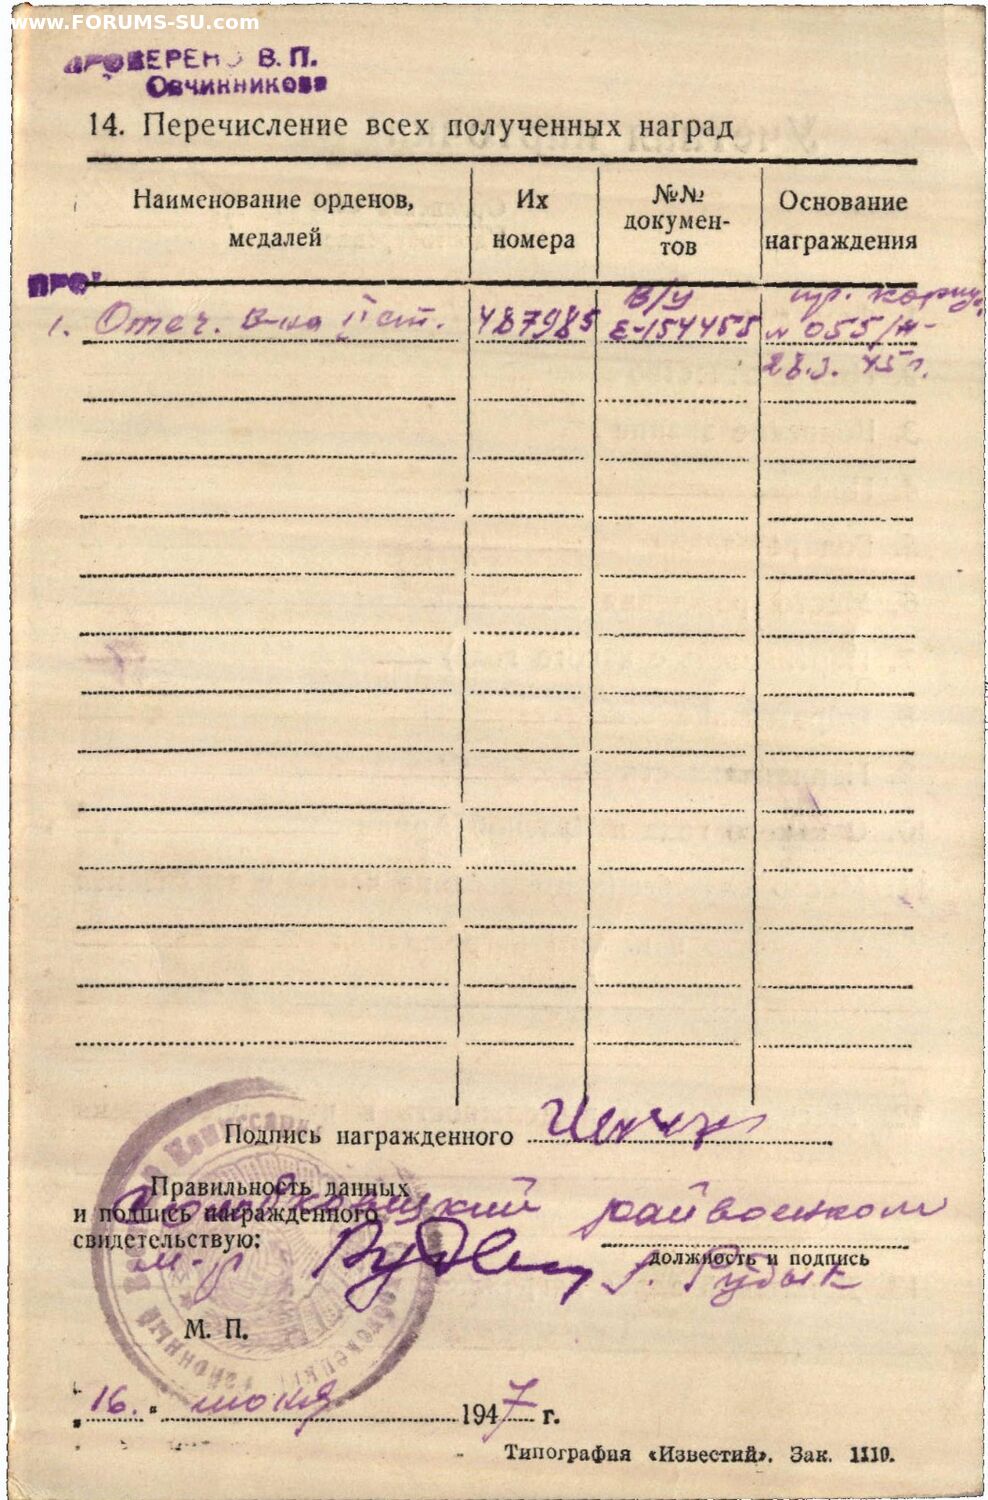 www.FORUMS-SU.com
ПРОВЕРЕНО В. П.
Овчинникова
14. Перечисление всех полученных наград
Наименование орденов, медалей
Их номера
№№ докумен-тов
Основание награждения
ПРО
1. Отеч. в-на II ст.
487985
в/у
Е-154455
пр. корпу.
№ 055/н-
28.3. 45 г.
Подпись награжденного
Правильность данных
и подпись награжденного
свидетельствую:
райвоенком
м-р
должность и подпись
Рудык
М. П.
"16." июня 1947 г.
Типография «Известий». Зак. 1110.